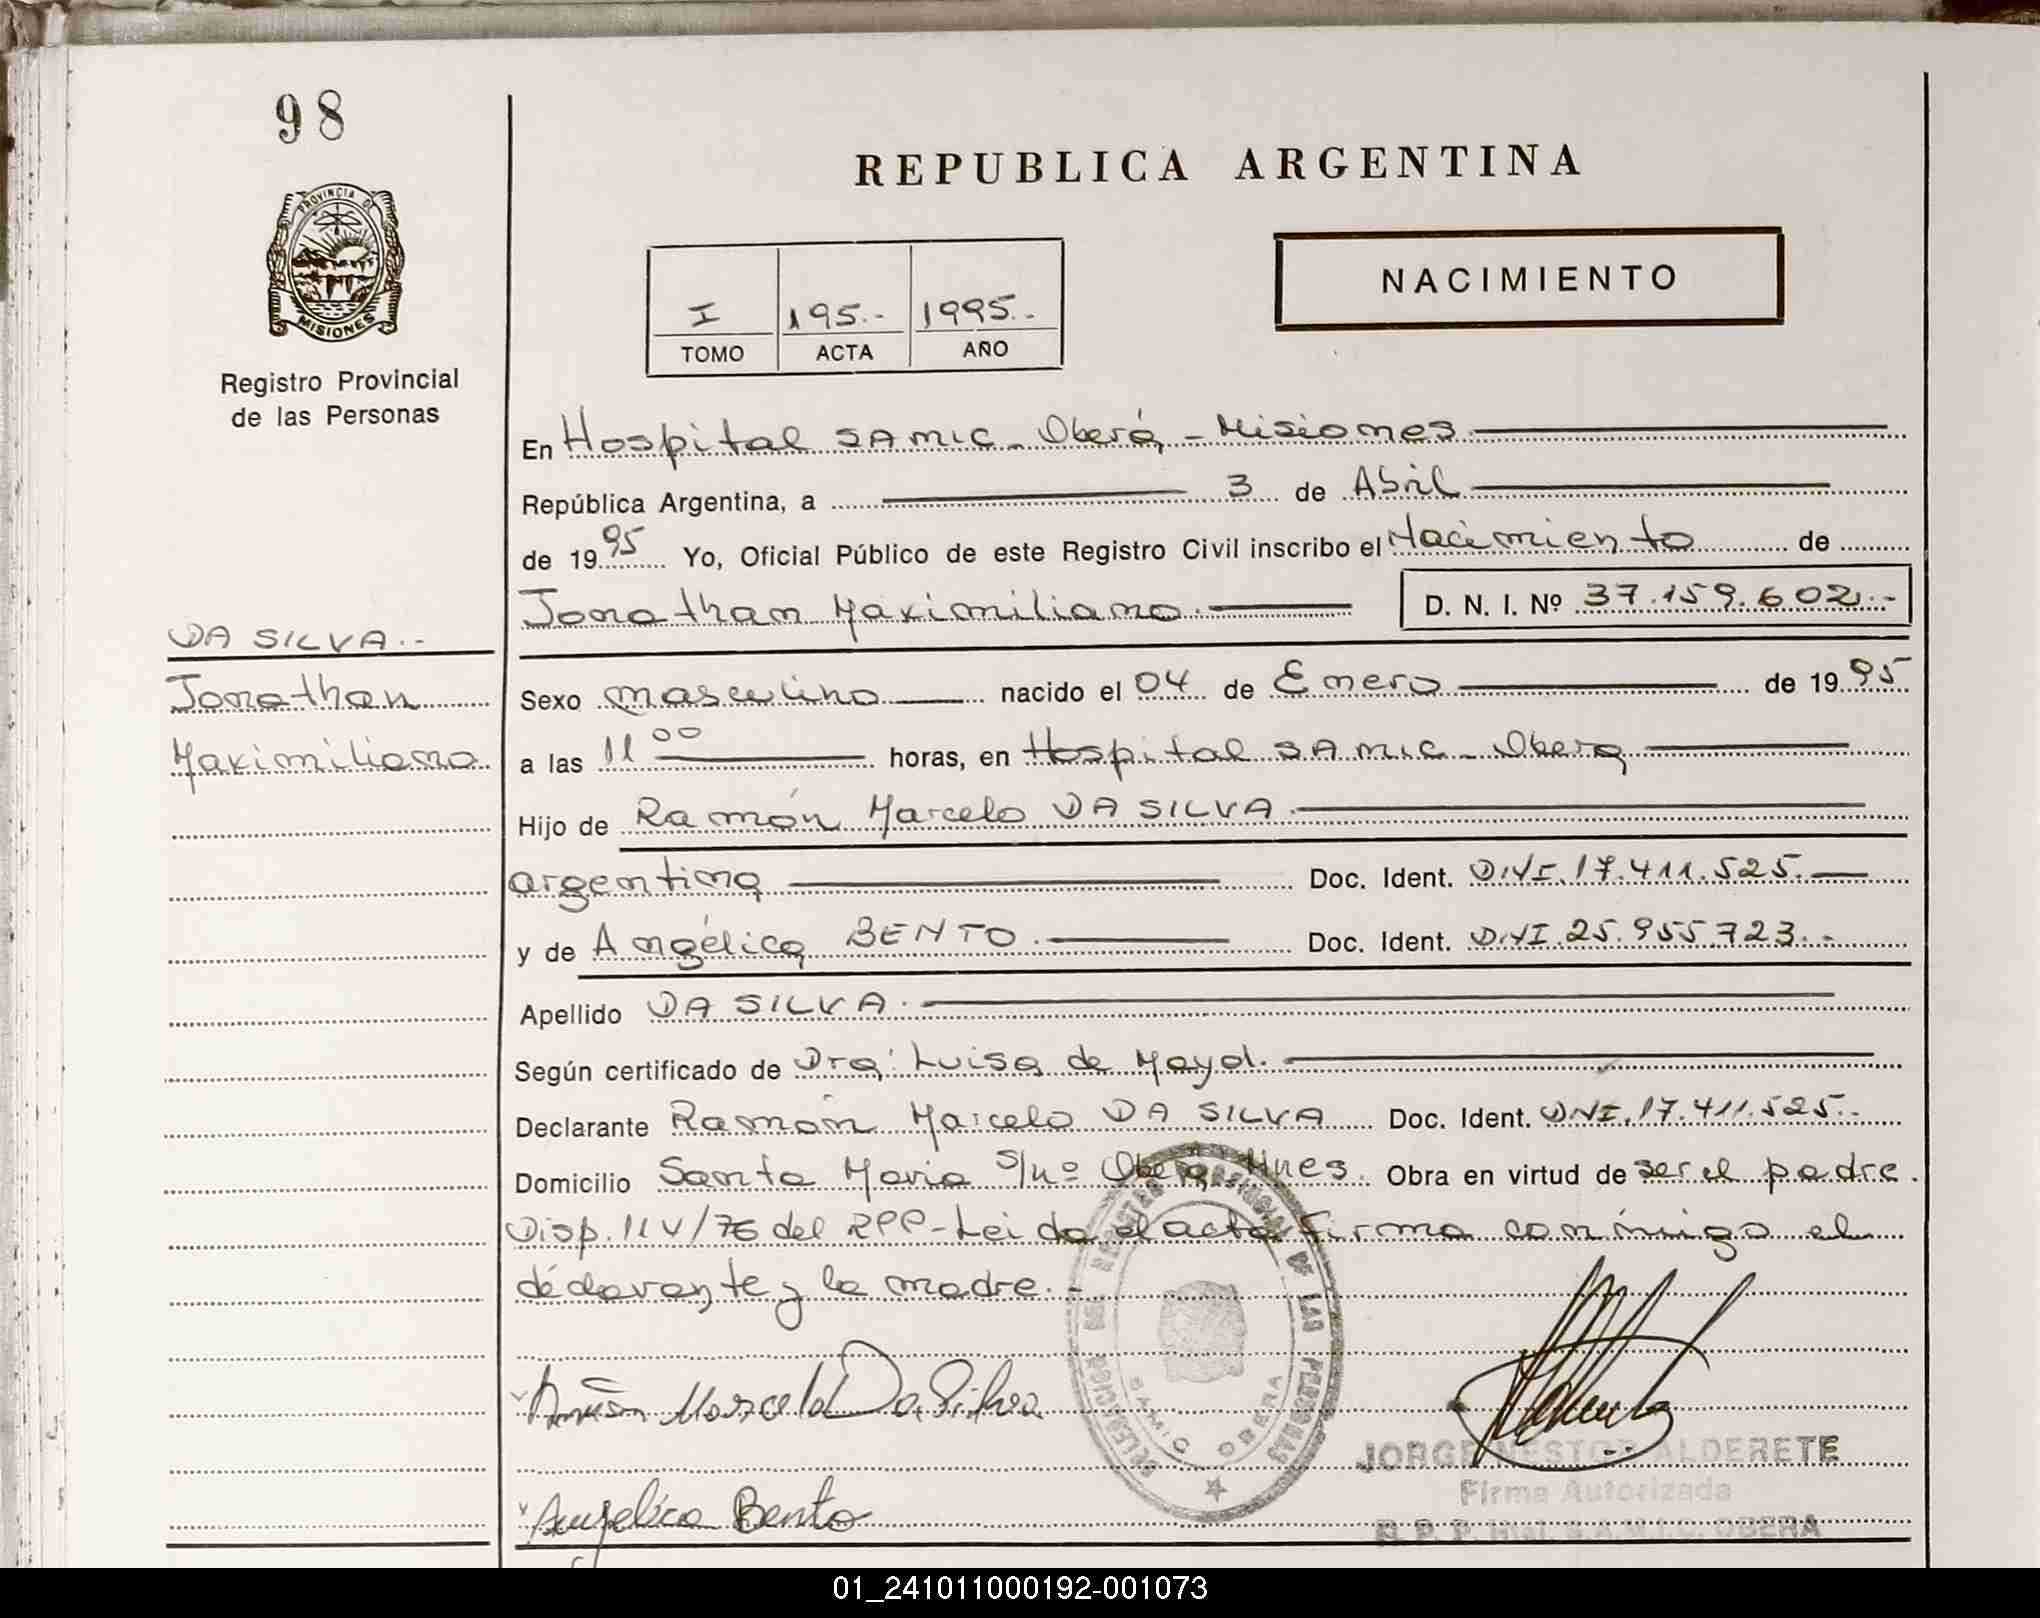 98
PROVINCIA DE
MISIONES
Registro Provincial
de las Personas
REPUBLICA ARGENTINA
NACIMIENTO
I 195.- 1995.-
TOMO ACTA AÑO
En Hospital SAMIC - Oberá - Misiones
República Argentina, a 3 de Abril
de 1995 Yo, Oficial Público de este Registro Civil inscribo el Nacimiento de
Jonathan Maximiliano. D. N. I. Nº 37.159.602.-
DA SILVA.-
Jonathan
Maximiliano
Sexo masculino nacido el 04 de Enero de 1995
a las 11 00 horas, en Hospital SAMIC - Oberá
Hijo de Ramón Marcelo DA SILVA.
argentina Doc. Ident. DNI.17.411.525.
y de Angélica BENTO. Doc. Ident. DNI.25.955.723.-
Apellido DA SILVA.
Según certificado de Dra: Luisa de
Declarante Ramón Marcelo DA SILVA Doc. Ident. DNI.17.411.525.-
Domicilio Santa Maria s/nº Oberá Mnes. Obra en virtud de ser el padre.
Disp. /76 del RPP - Leida el acta firma conmigo el
declarante y la madre.-
DELEGACION DEL REGISTRO PROVINCIAL DE LAS PERSONAS
SAMIC OBERA
Ramón Marcelo Da Silva
JORGE NESTOR ALDERETE
Firma Autorizada
R. P. P. Htal. S.A.M.I.C. OBERA
Angelica Bento
01_241011000192-001073